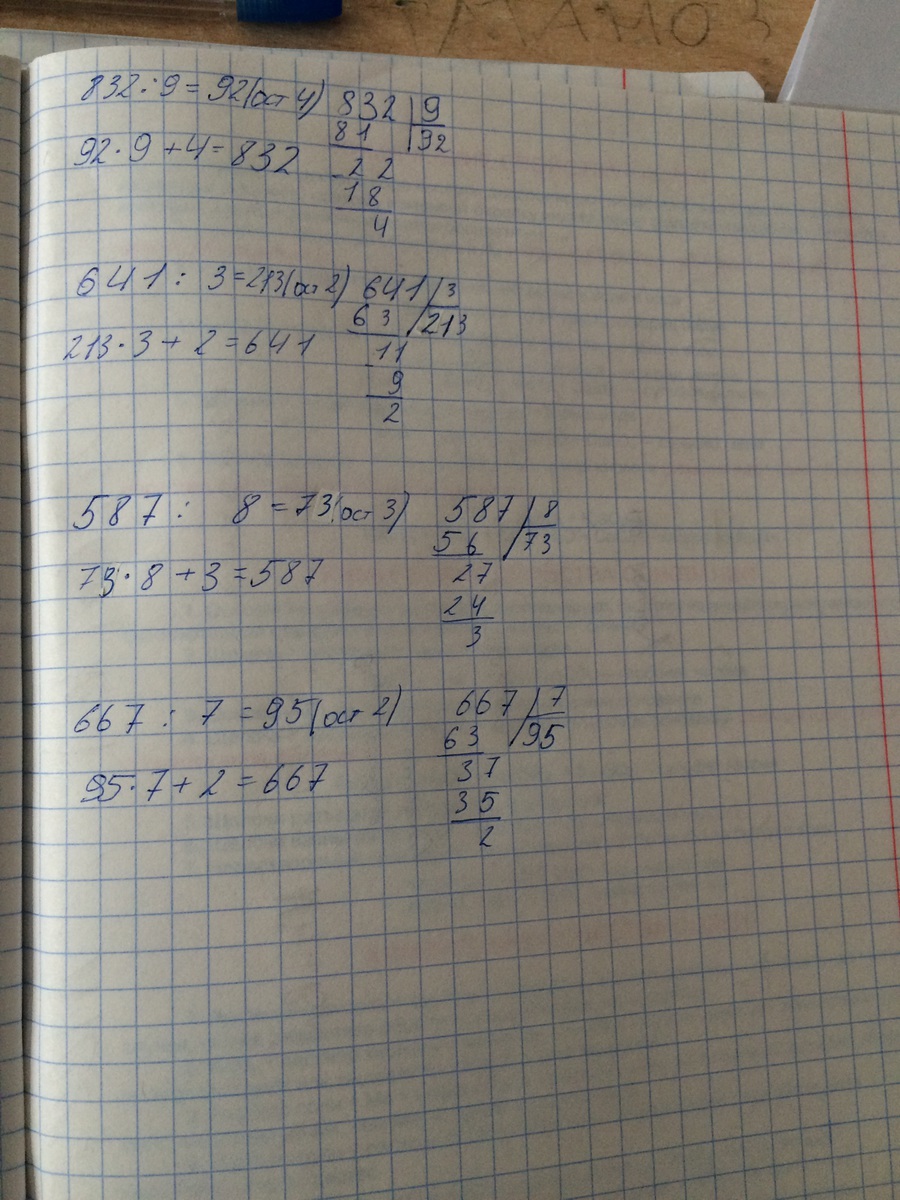 832:9=92(ост 4) 832 9
81 92
92·9+4=832
22
18
4
641: 3=213(ост 2) 641 3
63 213
213·3+2=641
11
9
2
587: 8=73(ост 3) 587 8
56 73
73·8+3=587
27
24
3
667: 7=95(ост 2) 667 7
63 95
95·7+2=667
37
35
2